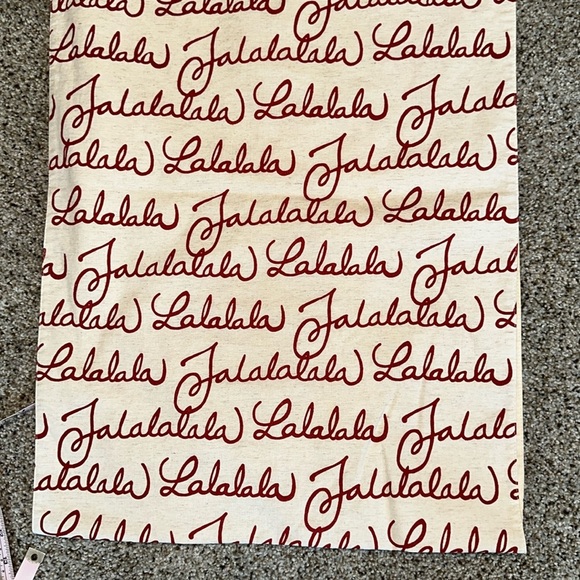 Lalalala Falalalala
Lalalala Falalalala Lalalala
Falalalala Lalalala Falala
alalala Lalalala Falalalala L
Lalalala Falalalala Lalalala
a Falalalala Lalalala Falala
alalala Lalalala Falalalala L
Lalalala Falalalala Lalalala
Falalalala Lalalala Falala
alalala Lalalala Falalalala
Lalalala Falalalala Lalalala